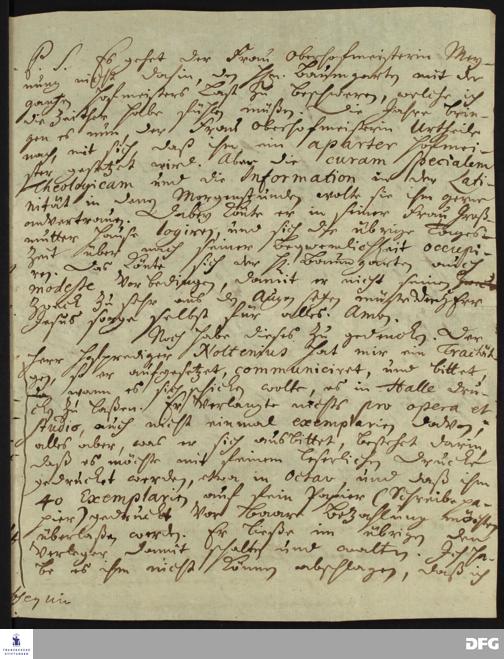 P. S. Es gehet der Frau Oberhofmeisterin Mey-
nung nicht dahin, den Hrn. Baumgarten mit der
gantzen Hofmeisters Last zu beschweren, welche ich
die Zeithero habe führen müßen. Die Jahre brin-
gen es nun, der Frau Oberhofmeisterin Urtheile
nach, mit sich, daß ihm ein aparter Hofmei-
ster gesetzet wird. Aber die curam specialem
Theologicam und die Information in der Lati-
nität in denen Morgenstunden wolte sie ihm gerne
anvertrauen. Dabey könte er in seiner Frau Groß-
mutter Hause logiren, und sich die übrige Tages-
zeit über nach seiner Bequemlichkeit occupi-
ren. Das könte sich der H. Baumgarten auch
modeste vorbedingen, damit er nicht seinen
Zweck zu sehr aus den Augen setzen müste. Der Herr
Jesus sorge selbst für alles. Amen.
Noch habe dieses zu gedencken. Der
Herr Hofprediger Noltenius hat mir ein Tractät-
gen, so er aufgesetzet, communiciret, und bittet,
wann es sich schicken wolte, es in Halle dru-
cken zu laßen. Er verlanget nichts pro opera et
studio, auch nicht einmal exemplarien davon,
alles aber, was er sich ausbittet, bestehet darin
daß es möchte mit feinem leserlichen Drucke
gedrucket werden, etwa in Octav und daß ihm
40 Exemplarien auf fein Papier (Schreibepa-
pier) gedruckt vor baare Bezahlung möchten
überlaßen werden. Er ließe im übrigen den
Verleger damit schalten und walten. Ich ha-
be es ihm nicht können abschlagen, daß ich
FRANCKESCHE
STIFTUNGEN
DFG